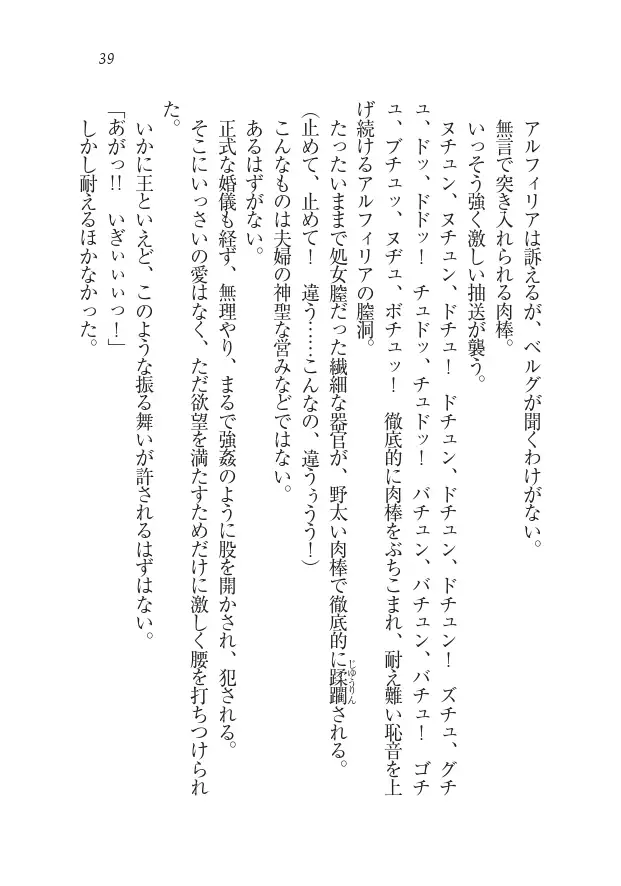 39
アルフィリアは訴えるが、ベルグが聞くわけがない。
無言で突き入れられる肉棒。
いっそう強く激しい抽送が襲う。
ヌチュン、ヌチュン、ドチュ！　ドチュン、ドチュン、ドチュン！　ズチュ、グチ
ュ、ドッ、ドドッ！　チュドッ、チュドッ！　バチュン、バチュン、バチュ！　ゴチ
ュ、ブチュッ、ヌヂュ、ボチュッ！　徹底的に肉棒をぶちこまれ、耐え難い恥音を上
げ続けるアルフィリアの膣洞。
たったいままで処女膣だった繊細な器官が、野太い肉棒で徹底的に蹂躙じゅうりんされる。
（止めて、止めて！　違う……こんなの、違うぅうう！）
こんなものは夫婦の神聖な営みなどではない。
あるはずがない。
正式な婚儀も経ず、無理やり、まるで強姦のように股を開かされ、犯される。
そこにいっさいの愛はなく、ただ欲望を満たすためだけに激しく腰を打ちつけられ
た。
いかに王といえど、このような振る舞いが許されるはずはない。
「あ゙がっ!!　いぎぃぃぃっ！」
しかし耐えるほかなかった。